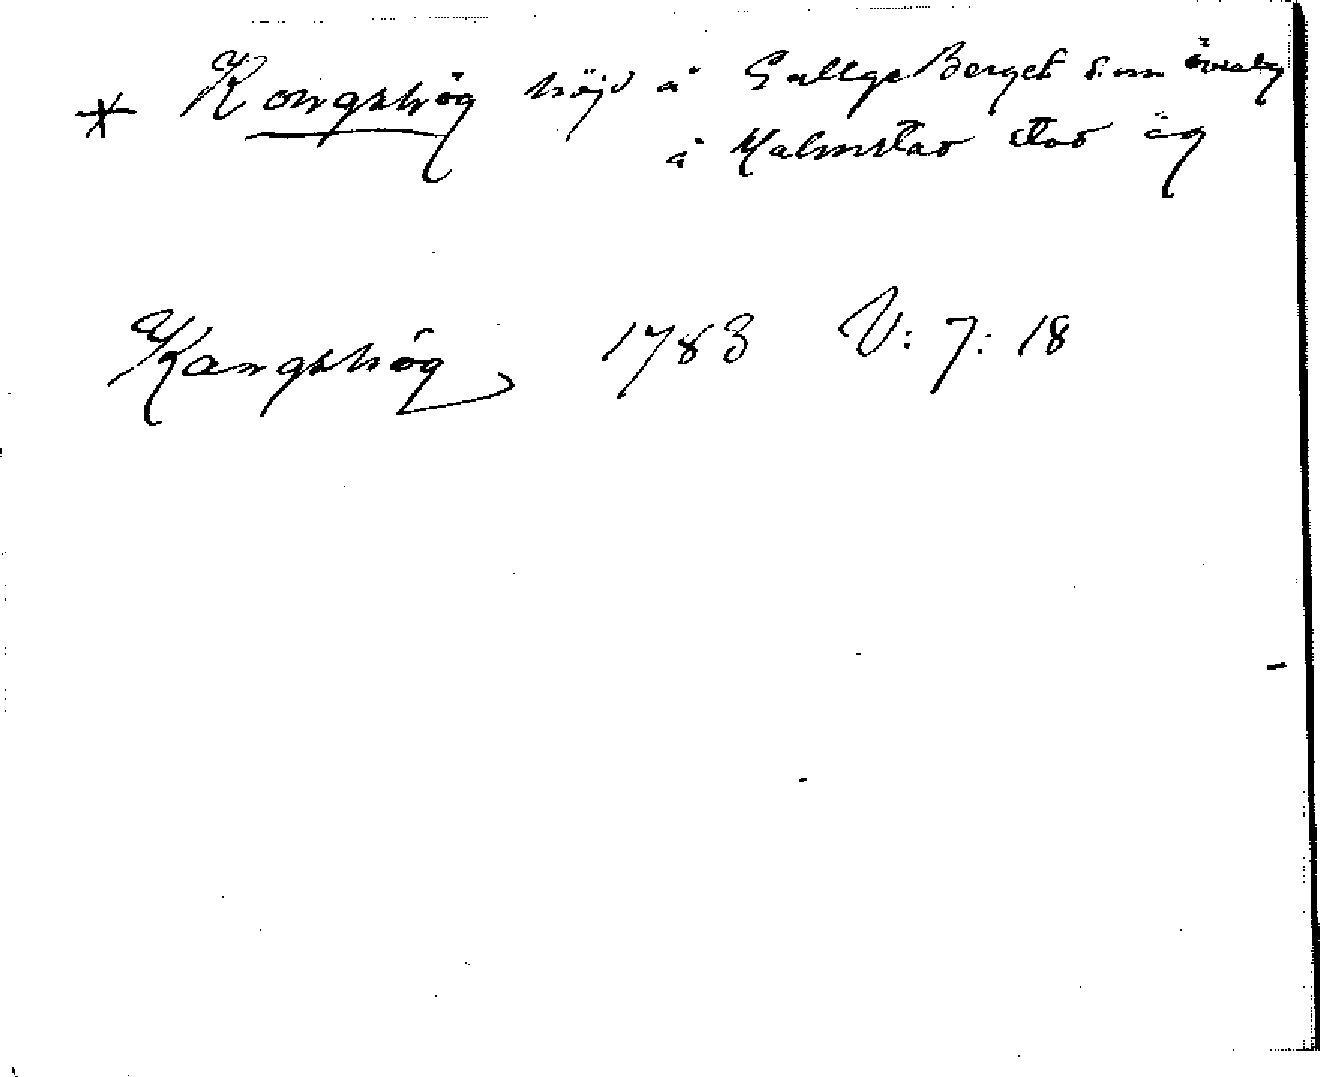 * Kongshög höjd å Gallge Berget som
å Halmstad stad äg
Kangshög 1783 V: 7: 18